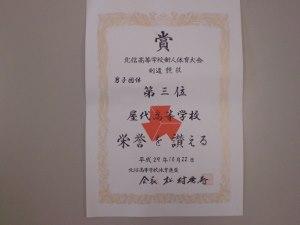 賞
北信高等学校新人体育大会
剣道競技
男子団体
第三位
屋代高等学校
栄誉を讃える
平成29年10月22日
北信高等学校体育連盟
会長 松村